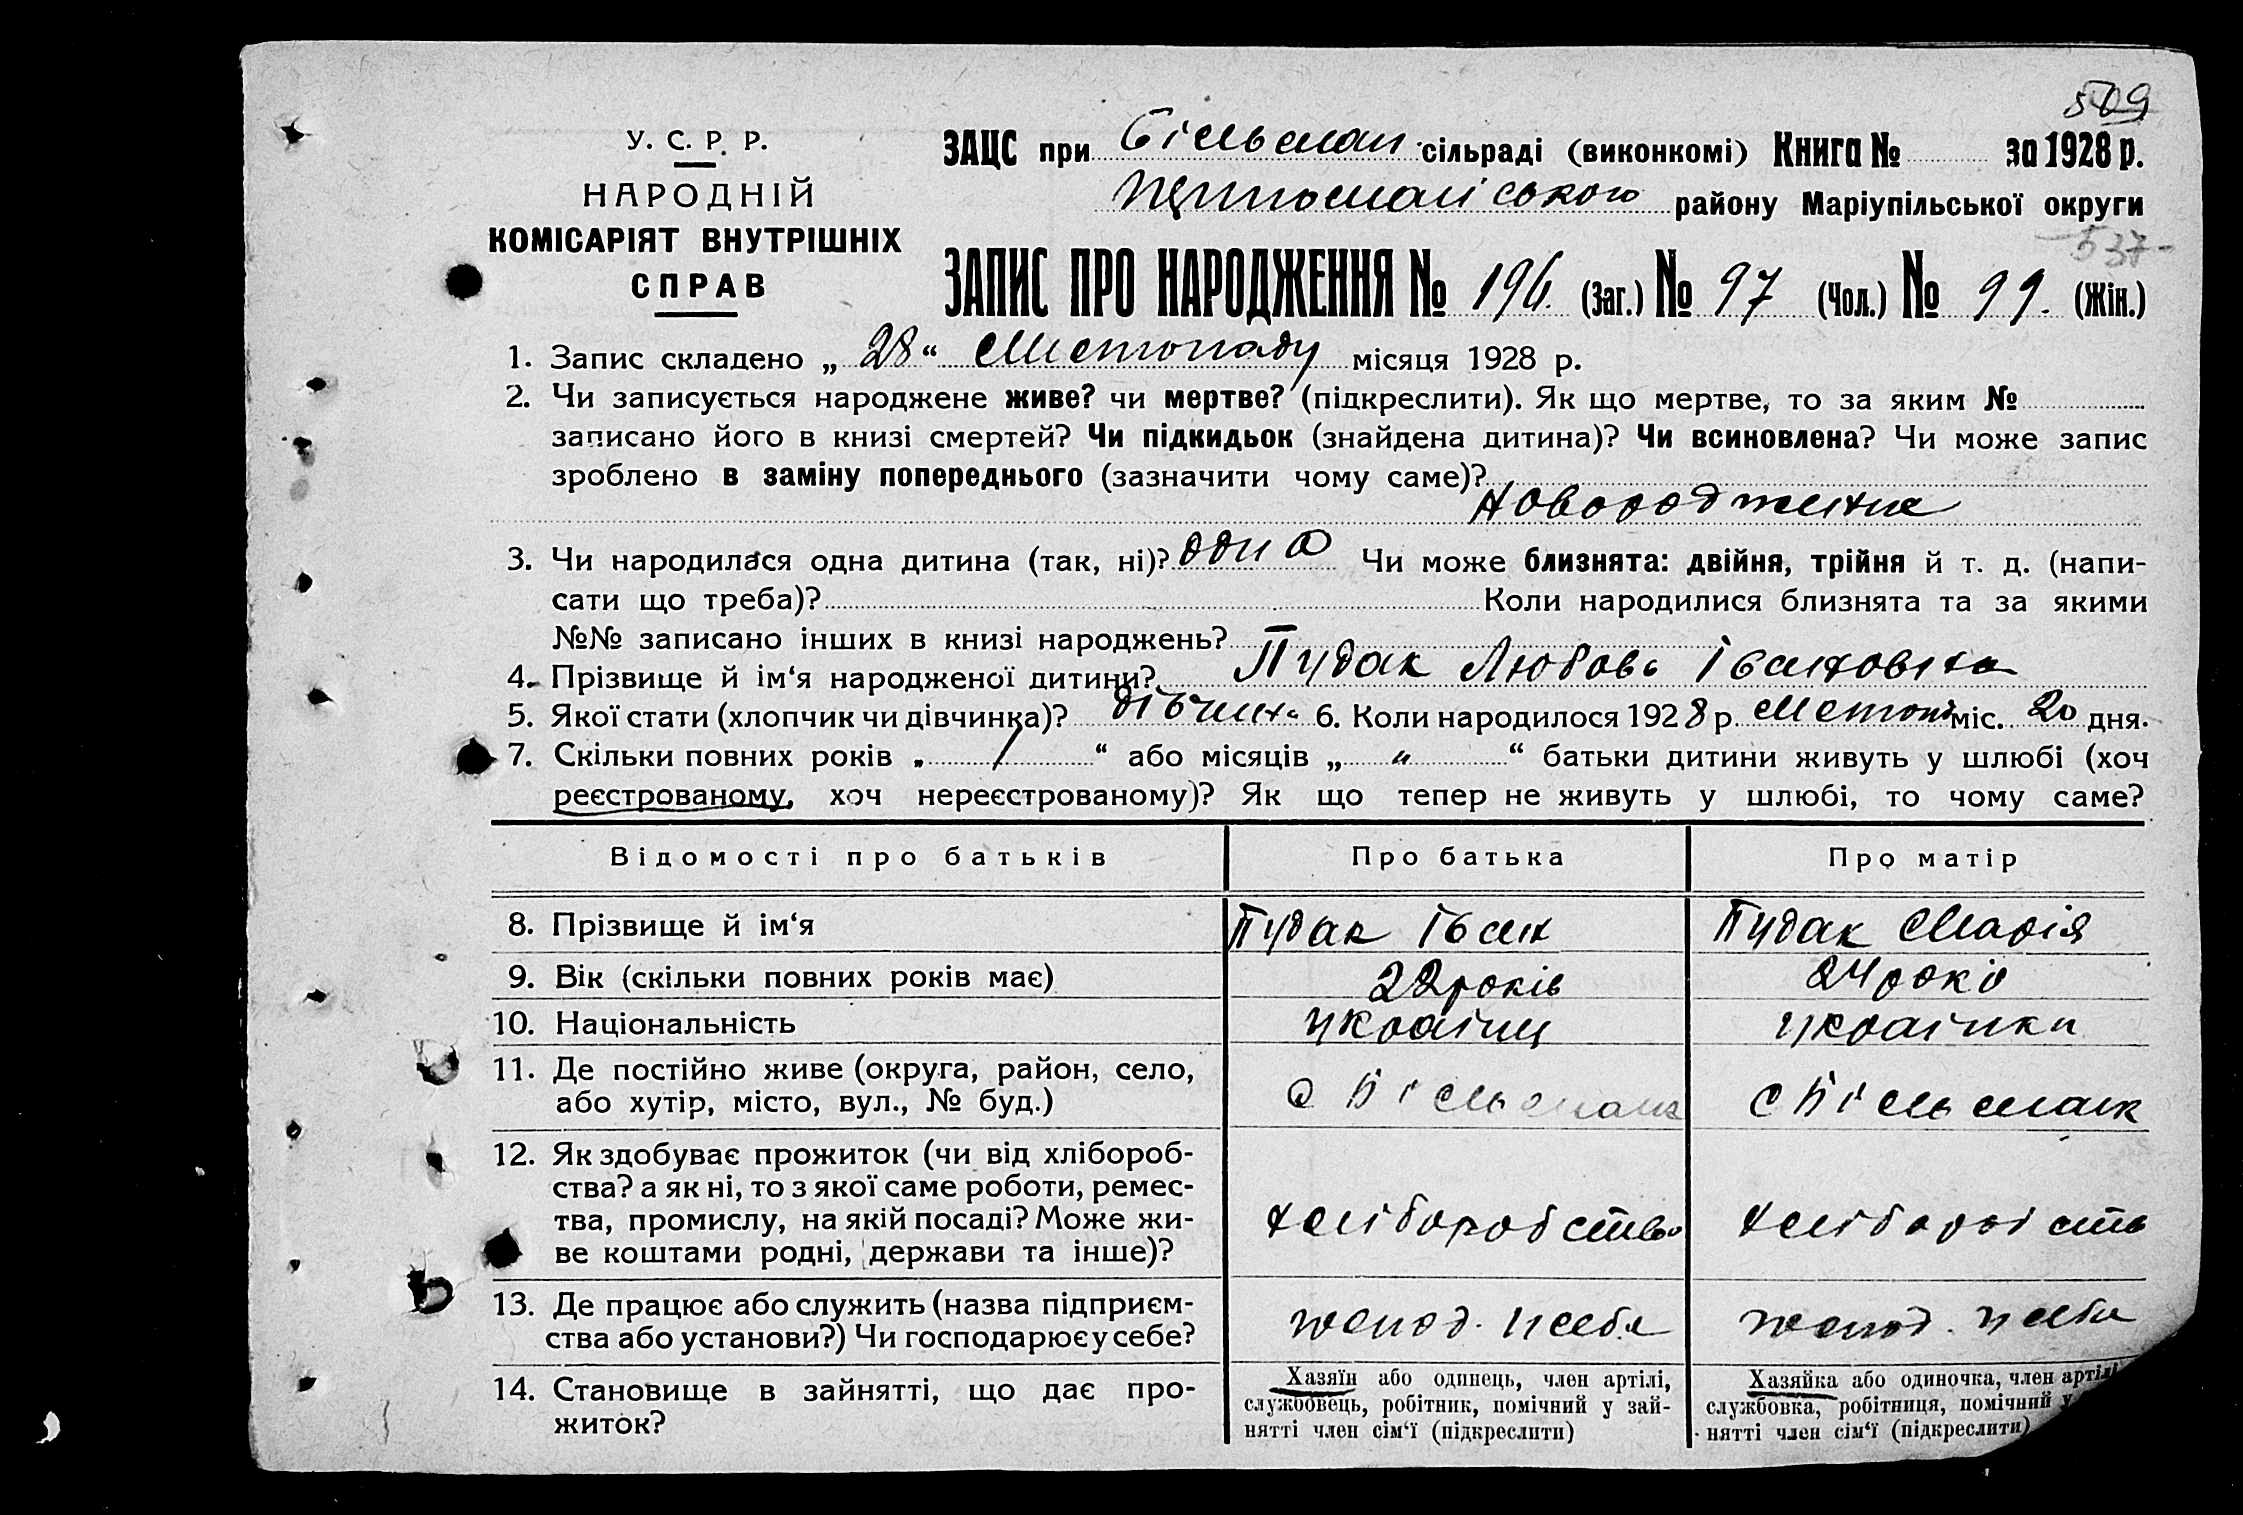 509
У. С. Р. Р.
НАРОДНІЙ
КОМІСАРІЯТ ВНУТРІШНІХ
СПРАВ
ЗАЦС при Більман сільраді (виконкомі) Книга № за 1928 р.
району Маріупільської округи
537
ЗАПИС ПРО НАРОДЖЕННЯ № 196. (Заг.) № 97 (Чол.) № 99. (Жін.)
1. Запис складено „ 28 “ Листопаду місяця 1928 р.
2. Чи записується народжене живе? чи мертве? (підкреслити). Як що мертве, то за яким №
записано його в книзі смертей? Чи підкидьок (знайдена дитина)? Чи всиновлена? Чи може запис
зроблено в заміну попереднього (зазначити чому саме)?
Новороджена
3. Чи народилася одна дитина (так, ні)? одна Чи може близнята: двійня, трійня й т. д. (напи-
сати що треба)? Коли народилися близнята та за якими
№№ записано інших в книзі народжень?
4. Прізвище й ім‘я народженої дитини? Пудак Любовь Івановна
5. Якої стати (хлопчик чи дівчинка)? 6. Коли народилося 1928 р. Листоп міс. 20 дня.
7. Скільки повних років „ 1 “ або місяців „ “ батьки дитини живуть у шлюбі (хоч
реєстрованому, хоч нереєстрованому)? Як що тепер не живуть у шлюбі, то чому саме?
Відомості про батьків Про батька Про матір
8. Прізвище й ім‘я Пудак Іван Пудак Марія
9. Вік (скільки повних років має) 22 років 24 рокі
10. Національність україн українка
11. Де постійно живе (округа, район, село,
або хутір, місто, вул., № буд.) с Більманк с Більманк
12. Як здобуває прожиток (чи від хлібороб-
ства? а як ні, то з якої саме роботи, ремес-
тва, промислу, на якій посаді? Може жи-
ве коштами родні, держави та інше)?
хліборобство
13. Де працює або служить (назва підприєм-
ства або установи?) Чи господарює у себе?
14. Становище в зайнятті, що дає про-
житок?
Хазяїн або одинець, член артілі,
службовець, робітник, помічний у зай-
нятті член сім‘ї (підкреслити)
Хазяйка або одиночка, член артілі
службовка, робітниця, помічний у
нятті член сім‘ї (підкреслити)